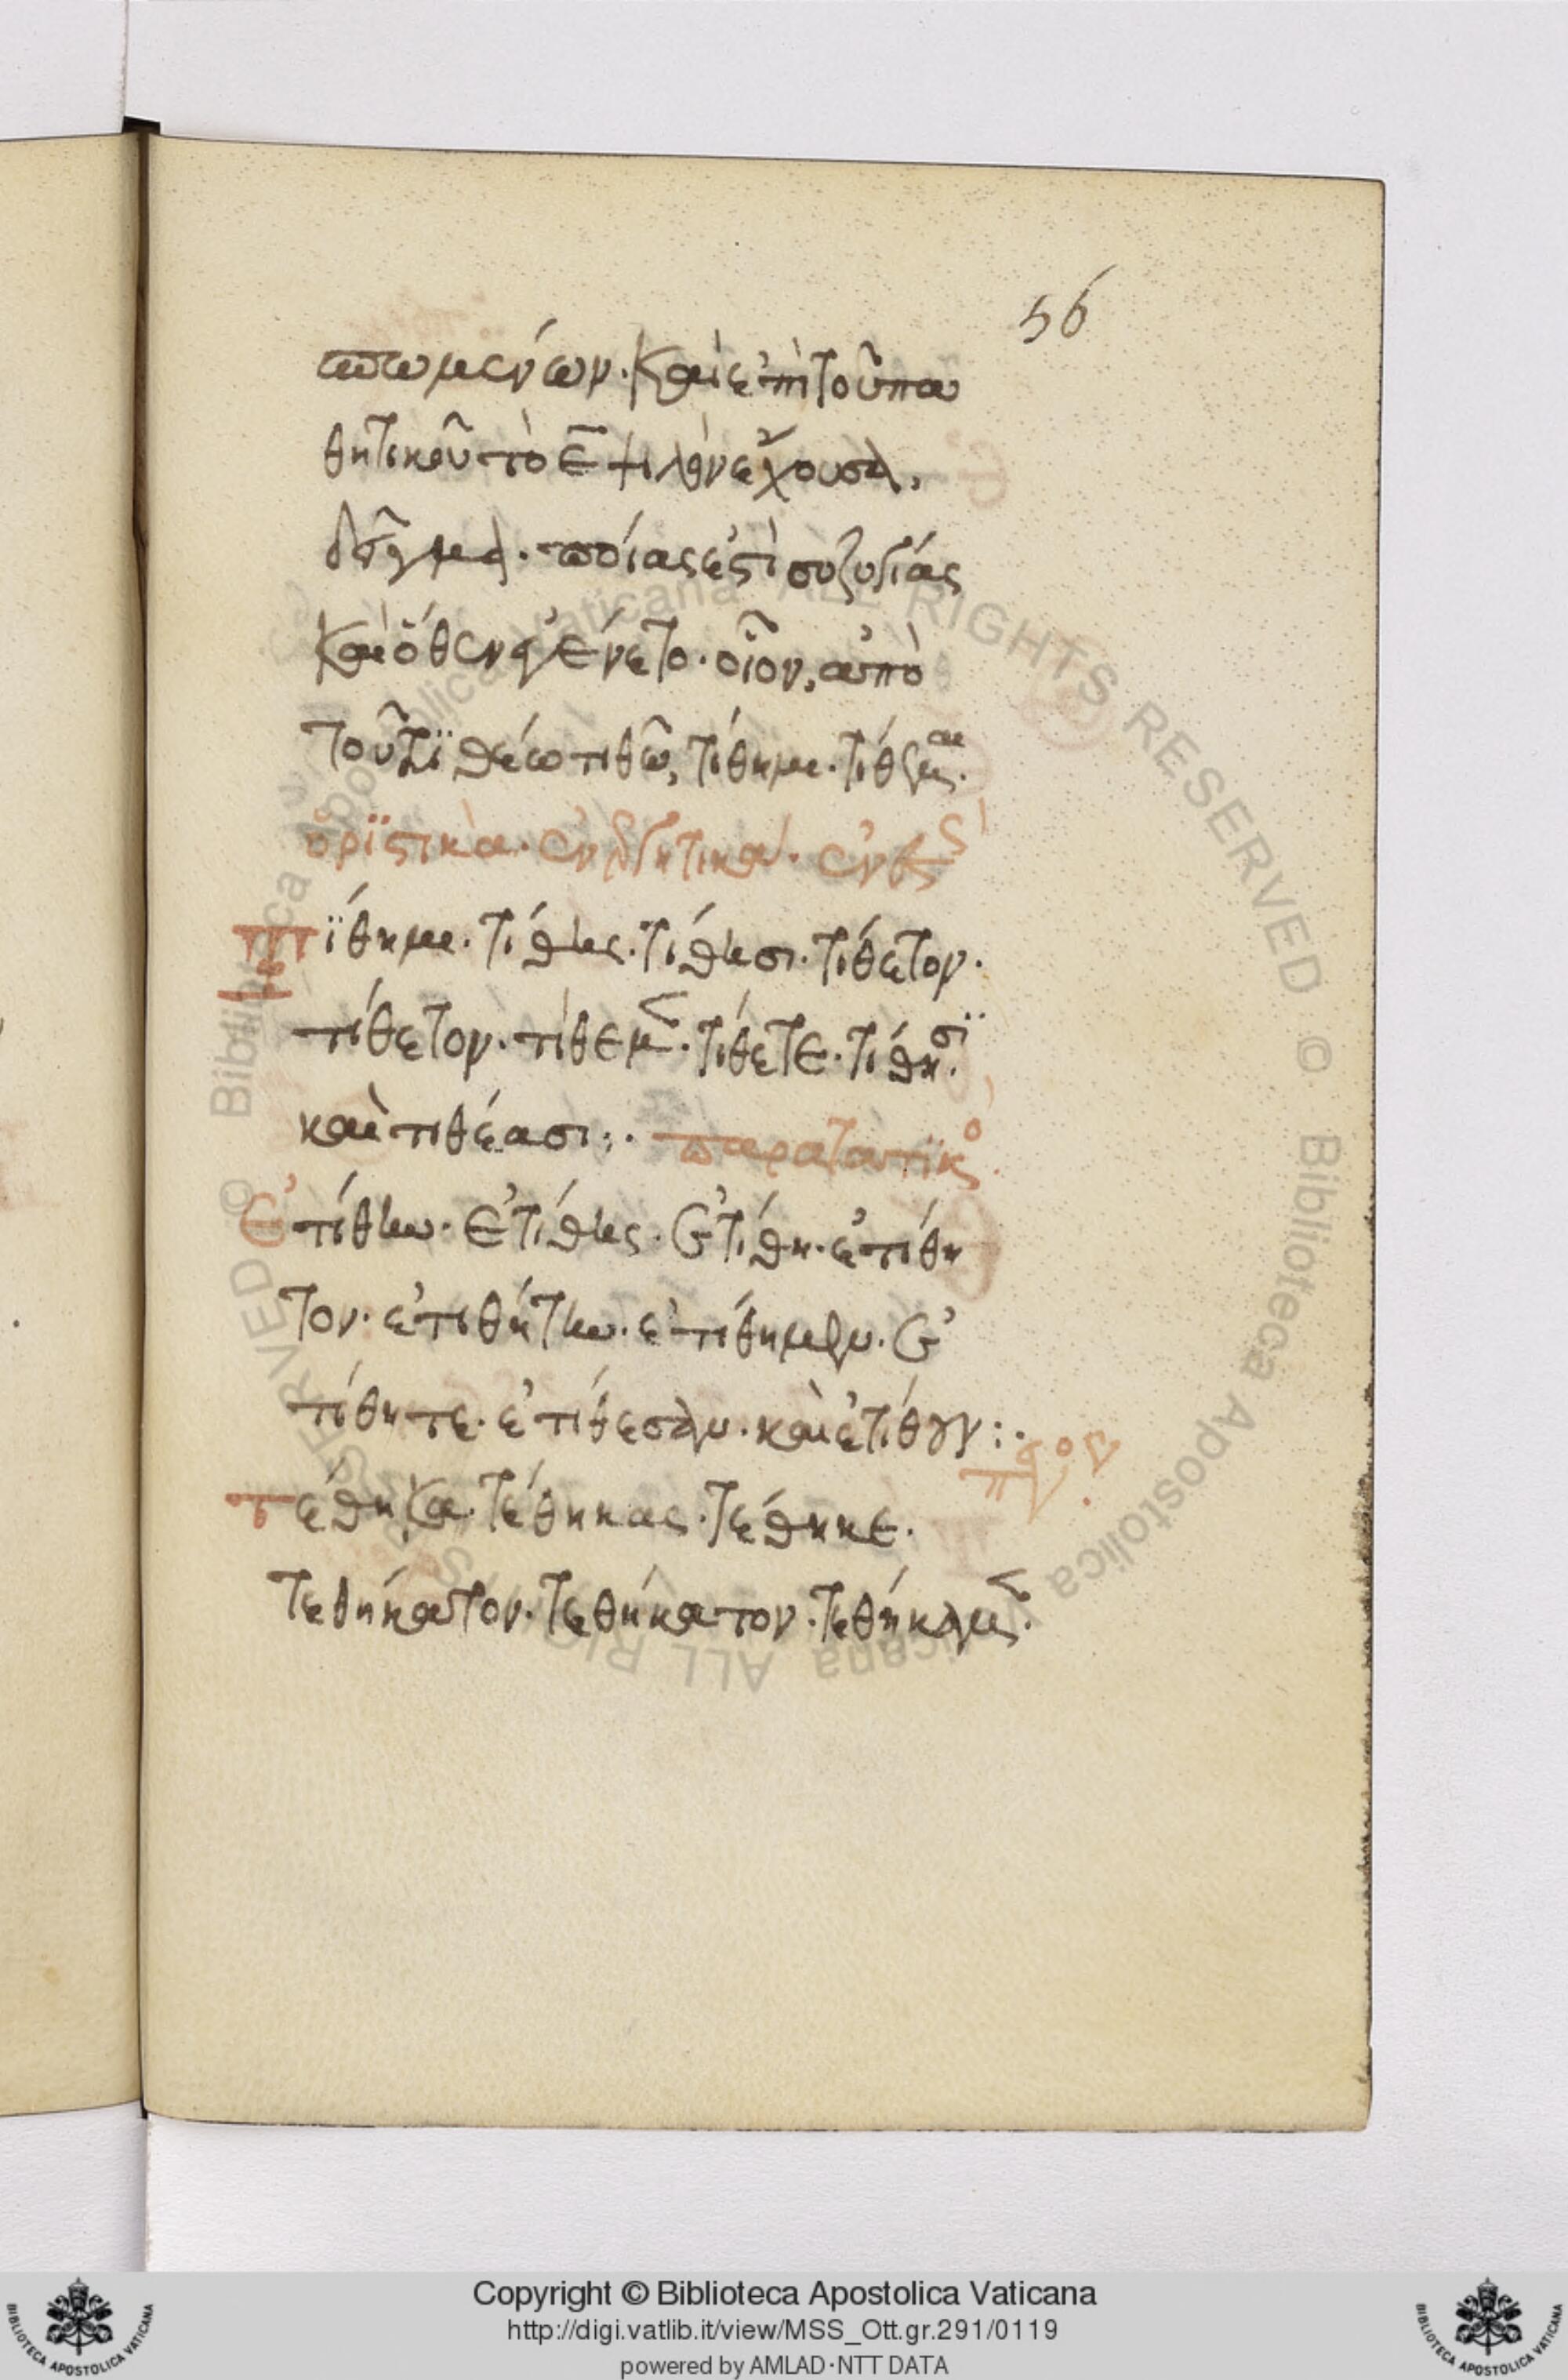 56
πτωμένων· Καὶ ἐπὶ τοῦ πα
θητικοῦ τὸ ε ψιλὸν ἔχουσα,
δεῖγμα· ποίας ἐστὶ συζυγίας
Καὶ ὅθεν γένετο· οἷον, ἀπὸ
τοῦ τϊθέω τιθῶ, τίθημι· τίθεμαι·
ὁρϊστικὰ· ἐνεργητικὰ· ἐνεστ
Τϊθημι· τίθης· τίθησι· τίθετον·
τίθετον· τίθεμεν· τίθετε· τίθησϊ·
καὶ τιθέασι:· παρατατϊκὸς·
Ἐτίθην· ἐτίθης· ἐτίθη· ἐτίθη
τον· ἐτιθήτην· ἐτίθημεν· ἐ
τίθητε· ἐτίθεσαν· καὶ ἐτίθουν:·
Τέθηκα· τέθηκας· τέθηκε·
τεθήκατον· τεθήκατον· τεθήκαμεν·
Copyright © Biblioteca Apostolica Vaticana
http://digi.vatlib.it/view/MSS_Ott.gr.291/0119
powered by AMLAD·NTT DATA